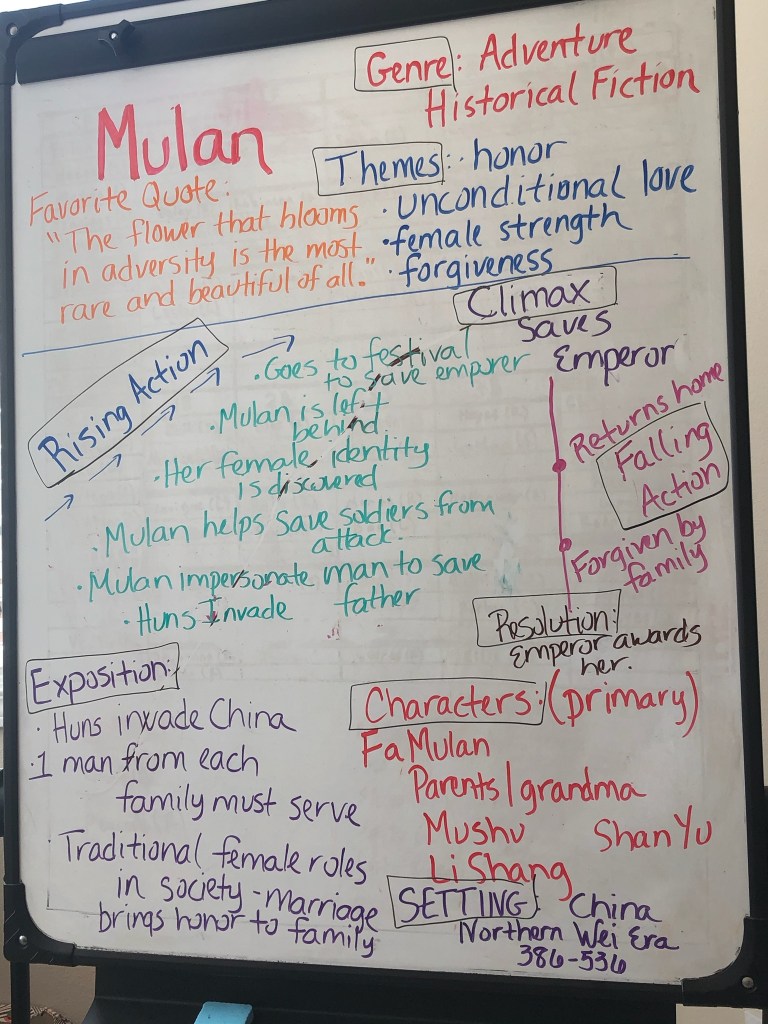 Genre: Adventure
Historical Fiction
Mulan
Themes: · honor
· unconditional love
· female strength
· forgiveness
Favorite Quote:
"The flower that blooms
in adversity is the most
rare and beautiful of all."
Climax
Saves
Emperor
Rising Action
· Goes to festival
to save emporer
· Mulan is left
behind
· Her female identity
is discovered
· Mulan helps save soldiers from
attack.
· Mulan impersonate man to save
father
· Huns Invade
Returns home
Falling
Action
Forgiven by
family
Resolution:
Emperor awards
her.
Exposition:
· Huns invade China
· 1 man from each
family must serve
· Traditional female roles
in society - marriage
brings honor to family
Characters: (primary)
Fa Mulan
Parents/grandma
Mushu Shan Yu
Li Shang
SETTING: China
Northern Wei Era
386-536